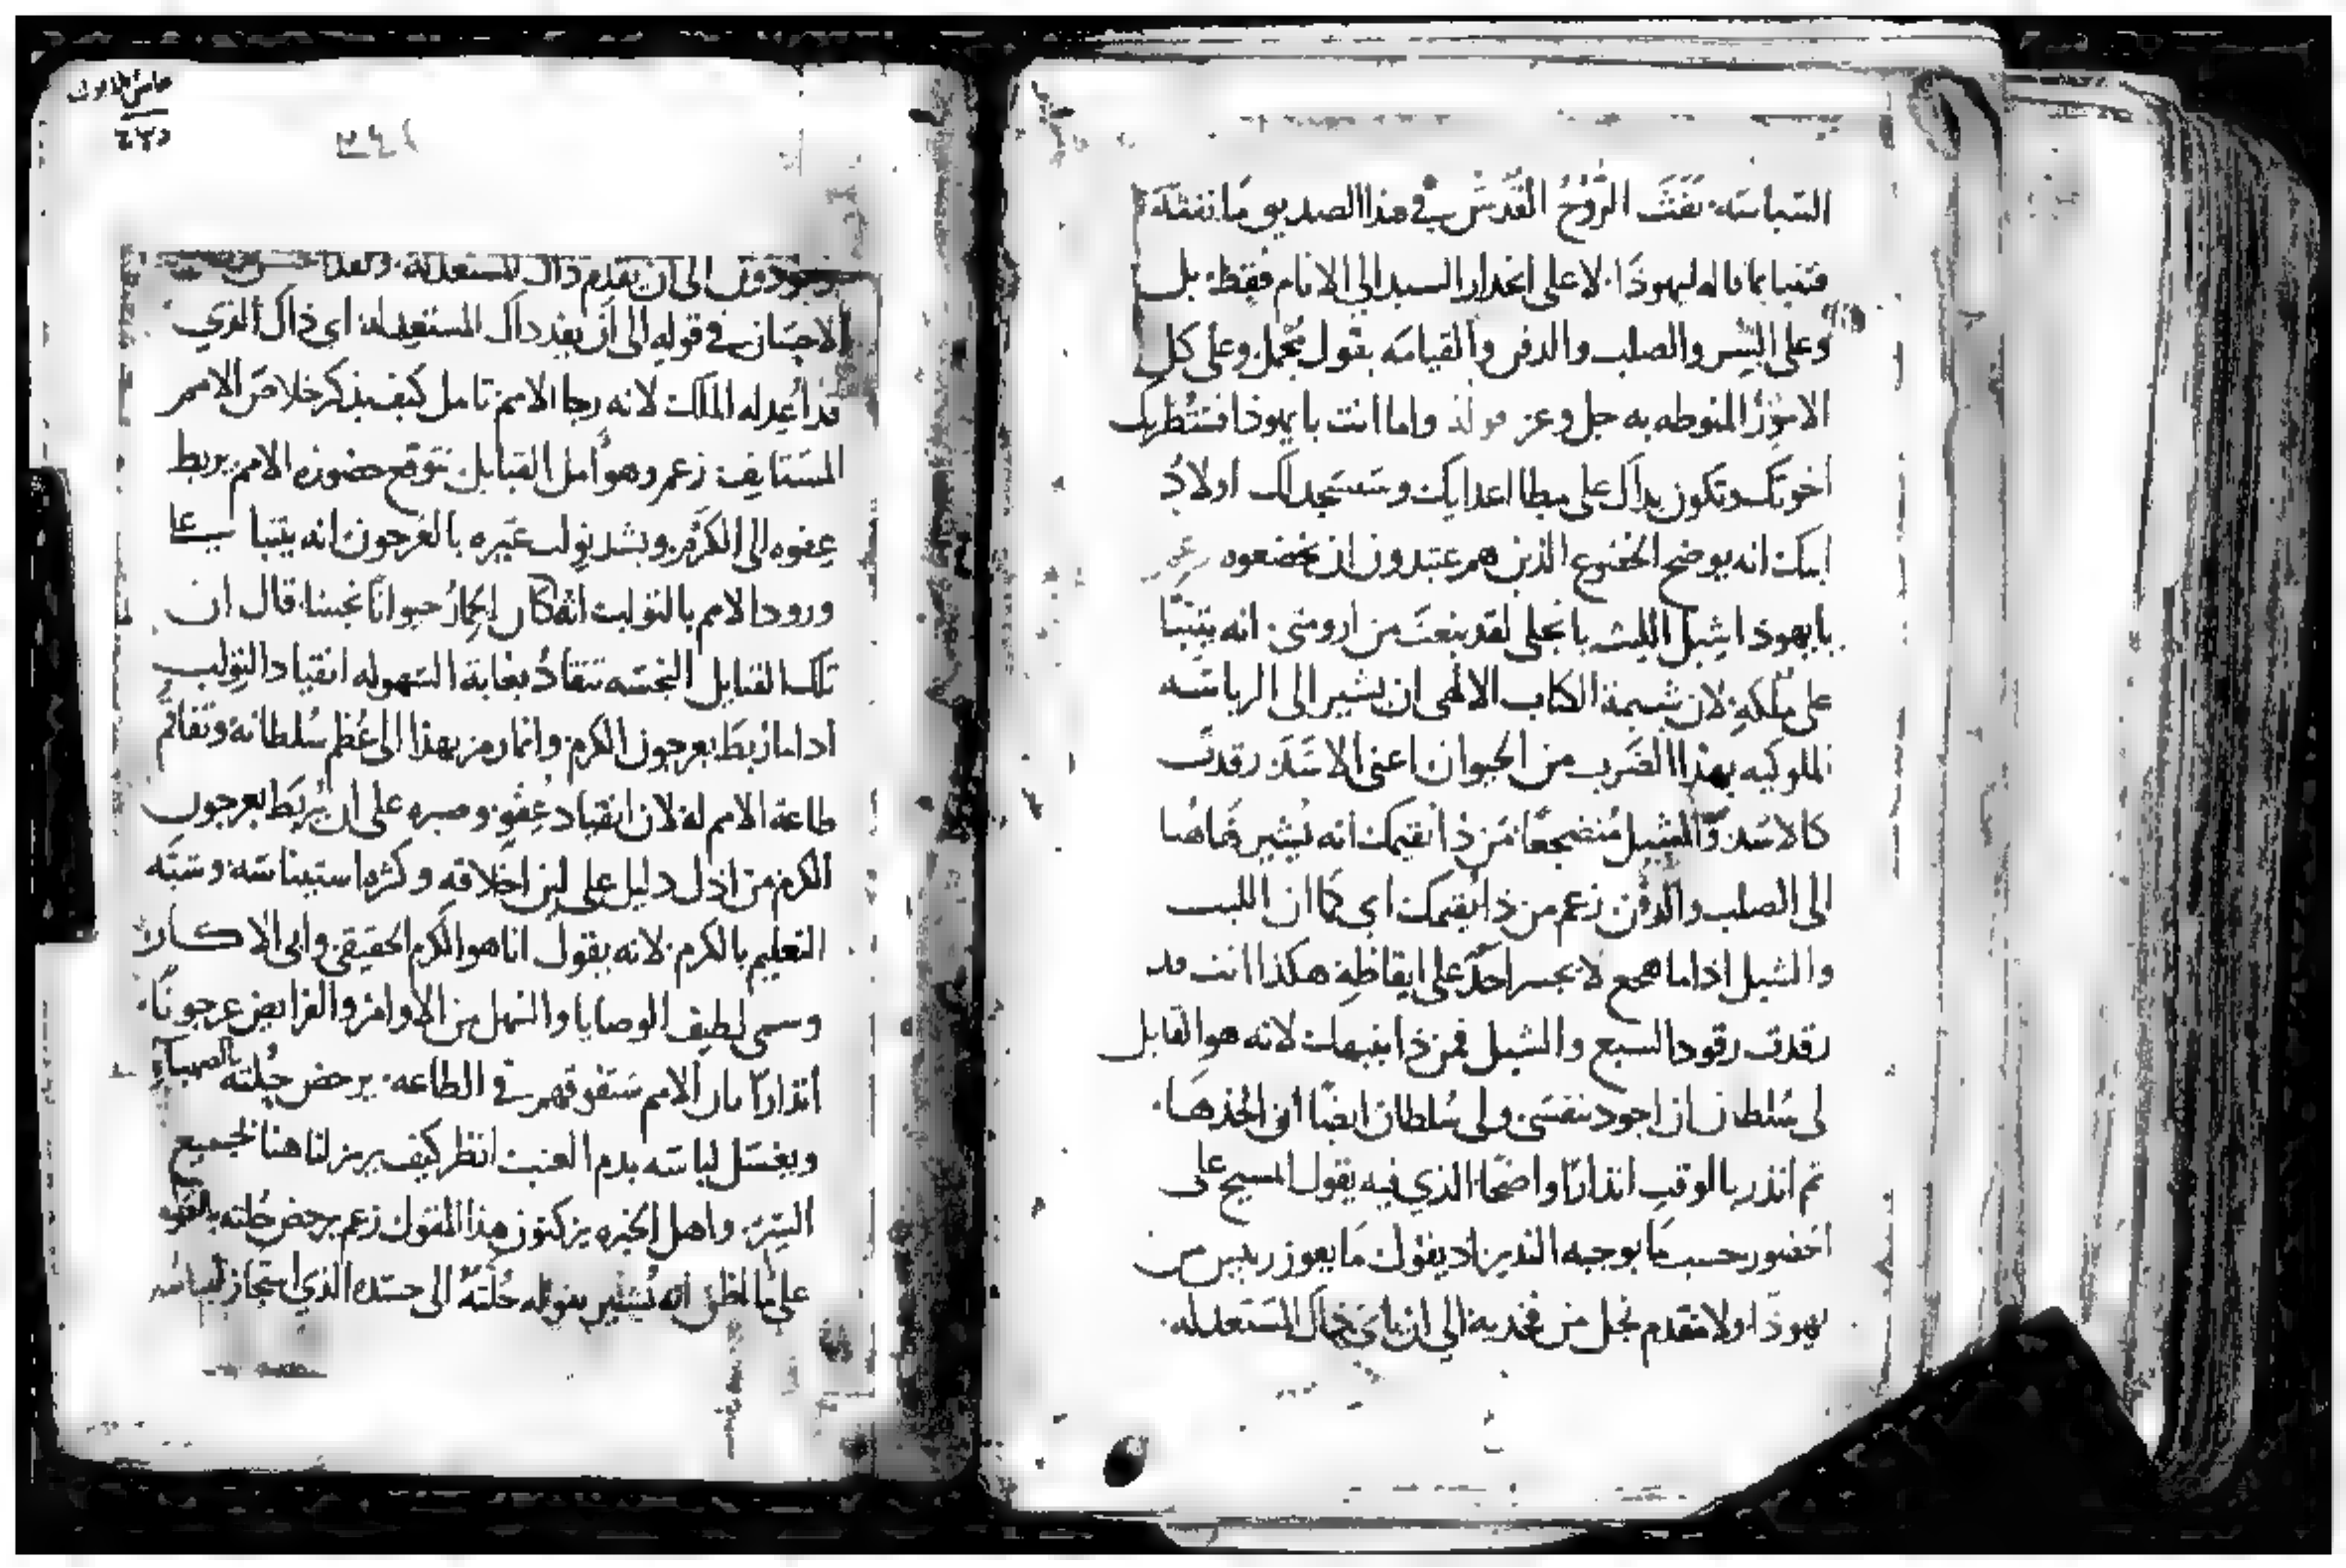 السياسه. نفث الرُّوحُ القُدسُ في هذا الصديق ما نفثه
فتنبا بما قاله ليهوذا. لا على انحدار السيد الي الانام فقط. بل
وعلى السِّر والصلب والدفن والقيامه بقول مُجمل. وعلى كل
الامُورُ المنوطه به جل وعز واما انت يا يهوذا
اخوتك وتكون يداك على مطا اعدايك وستسجد لك اولادُ
ابيك انه يوضح الخضوع الذين هم عتيدون ان يخضعوه
يا يهوذا شبل الليث يا نجلي لقد ينعت من ارومتى. انه يتنبّا
على مُلكه. لان شيمة الكتاب الالهى ان يشير الى الرياسه
الملوكيه بهذا الضرب من الحيوان اعنى الاسد. رقدت
كالاسد والشبل مُنضجعًا من ذا يقيمك انه يُشير هاهُنا
الى الصلب والدفن. زعم من ذا يُقيمك اى كما ان الليث
والشبل اذا ما هجع لا يجسر احدٌ على ايقاظه هكذا انت قد
رقدت رقود السبع والشبل فمن ذا ينبهك لانه هو القايل
لى سُلطان ان اجود بنفسى ولى سُلطان ايضًا ان اخذها.
ثم انذر بالوقت انذارًا واضحًا الذي فيه يقول المسيح على
الحضور حسب ما يوجبه التدبير اذ يقول ما يعوز رييس من
يهوذا ولا متقدم نجل من فخديه الى ان ياتى ذاك المستعد له.
الى ان يقدم ذاك المستعد له.
في قوله الى ان يفد ذاك المستعد له اى ذاك الذي
قد اُعد له الملك لانه رجا الامم تامل كيف يذكر خلاص الامم
المستانف زعم وهو امل القبايل نتوقع حضوره الامم. يربط
عفوه الى الكرم. ويشد تولب عَيره بالعرجون انه يتنبا على
ورود الامم بالتولب انه كان الحمارُ حيوانًا نجسًا. قال ان
تلك القبايل النجسه تنقادُ بغاية السهوله انقياد التولب
اذا ما رُبط بعرجون الكرم. وانما رمز بهذا الى عُظم سُلطانه وتفاقُم
طاعة الامم له لان انقياد عِفوٍ وصبره على ان يُربَط بعرجون
الكرم من ادل دليل على لين اخلاقه وكثره استيناسه. وشبّه
التعليم بالكرم. لانه يقول انا هو الكرم الحقيقى وابى الاكار
وسمى لطيف الوصايا والسهل من الاوامر والفرايض عرجونًا.
انذارًا بان الامم ستفوقهم في الطاعه. يرحض حُلته بالصهباء
ويغسل لباسه بدم العنب انظر كيف يرمز لنا هنا لجميع
السِّر. واهل الخبره يزكنون هذا المقول زعم يرحض حُلته بالقهوه
على ما اظن انه يُشير بقوله حُلتهُ الى جسده الذى استجاز لباسه